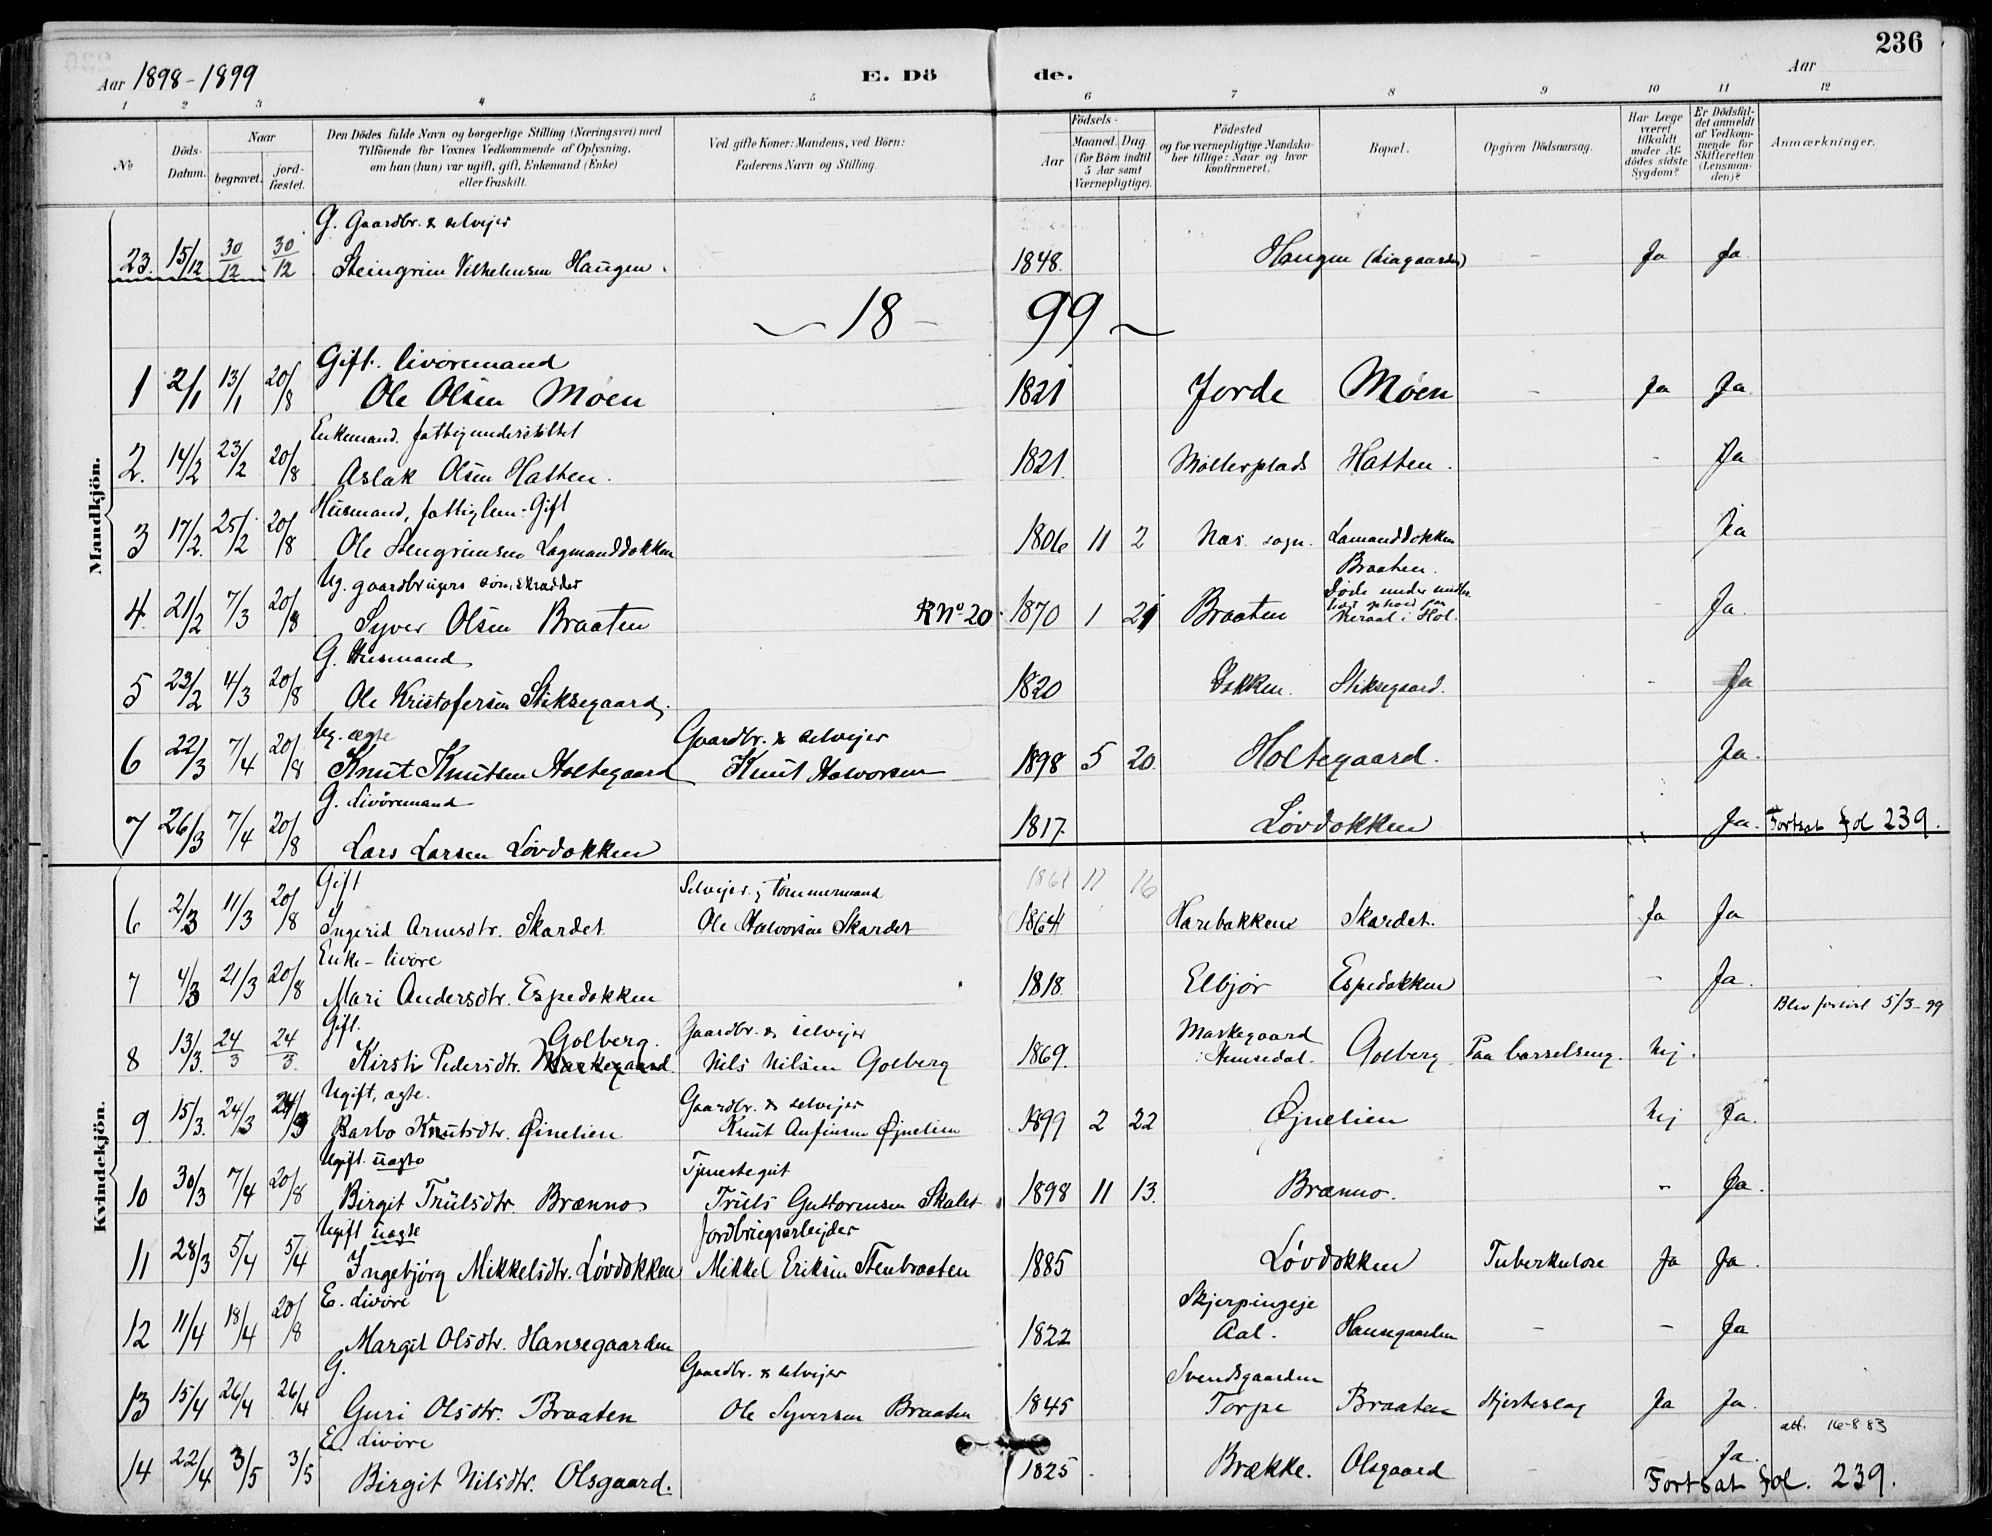 236
Aar 1898-1899
E. Dö
de.
Aar
1 2 3 4 5 6 7 8 9 10 11 12
No
Döds-Datum.
Naar
begravet.
jord-fæstet.
Den Dödes fulde Navn og borgerlige Stilling (Næringsvei) med
Tilföiende for Voxnes Vedkommende af Oplysning,
om han (hun) var ugift, gift, Enkemand (Enke)
eller fraskilt.
Ved gifte Koner: Mandens, ved Börn:
Faderens Navn og Stilling.
Födsels-
Aar
Maaned. Dag
(for Börn indtil
5 Aar samt
Værnepligtige).
Födested
og for værnepligtige Mandska-
ber tillige: Naar og hvor
konfirmeret.
Bopæl.
Opgiven Dödsaarsag.
Har Læge
været
tilkaldt
under Af-
dödes sidste
Sygdom?
Er Dödsfal-
det anmeldt
af Vedkom-
mende for
Skifteretten
(Lensman-
den)?
Anmærkninger.
Mandkjön.
G. Gaardbr. & selvejer
23. 15/12 30/12 30/12 Steingrim Vilhelmsen Haugen. 1848. Haugen (Liagaarden) - Ja Ja
18 - 99
Gift. livøremand
1 2/1 13/1 20/8 Ole Olsen Møen 1821 Jorde Møen - Ja Ja.
Enkemand. fattigunderstøttet
2. 14/2 23/2 20/8 Aslak Olsen Hatten. 1821. Møllerplads Hatten. - Ja
Husmand, fattiglem. Gift
3 17/2. 25/2 20/8 Ole Stengrimsen Lagmanddokken 1806 11 2 Næs sogn. Lamanddokken - Ja
Ug. gaardbrugers søn, skrædder
Braaten.
4. 21/2 7/3 20/8 Syver Olsen Braaten R No 20. 1870 1 21 Braaten Døde under midler
tidigt ophold paa
i Hol. - Ja.
G. Husmand
5 23/2 4/3 20/8 Ole Kristofersen Stiksegaard. 1820 Bakken. Stiksegaard. - Ja
Ug. ægte Gaardbr. & selvejer
6 22/3 7/4 20/8 Knut Knutsen Holtegaard Knut Halvorsen 1898 5 20. Holtegaard. Ja.
G. Livöremand
7 26/3 7/4 20/8 Lars Larsen Lövdokken 1817. Lövdokken Ja. Fortsat Fol 239.
Kvindekjön.
Gift Selvejer & tømmermand 1861 11 16
6 2/3 11/3 20/8 Ingerid Arnesdtr. Skardet. Ole Halvorsen Skardet 1864 Harebakkene Skardet. Ja Ja
Enke - livöre
7 4/3 21/3 20/8 Mari Andersdtr. Espedokken 1818. Elbjør Espedokken - Ja.
Blev forløst 5/3-99
Gift. Golberg. Gaardbr. & selvejer Markegaard
8 13/3. 24/3 24/3. Kirsti Pedersdtr. Markegaard Nils Nilsen Golberg 1869. i Hemsedal. Golberg. Paa barselseng. Nej.
Ugift, ægte. Gaardbr. & selvejer
9 15/3. 24/3 24/3 Barbo Knutsdtr. Øinelien Knut Anfinsen Øjnelien 1899 2 22 Øjnelien Nej Ja.
Ugift. uægte Tjenestegut
10 30/3 7/4 20/8 Birgit Trulsdtr. Brænno Truls Guttormsen Skalet 1898 11 13. Brænno. - Ja.
Ugift uægte Jordbrugsarbejder
11 28/3 5/4 5/4 Ingebjörg Mikkelsdtr. Lövdokken Mikkel Eriksen Stenbraaten 1885 Lövdokken Tuberkulose Ja Ja.
E. Livöre Skjerpingeje
12 11/4 18/4 20/8 Margit Olsdtr. Hansegaarden 1822 Aal. Hansegaarden - - Ja
G. Gaardbr. & selvejer Svendsgaarden
13 15/4 26/4 26/4 Guri Olsdtr. Braaten Ole Syversen Braaten 1845 Torpe Braaten Hjerteslag Ja Ja.
att. 16-8 83
E. Livöre
14 22/4 3/5 3/5 Birgit Nilsdtr. Olsgaard. 1825 Brække. Olsgaard - Ja.
Fortsat Fol. 239.